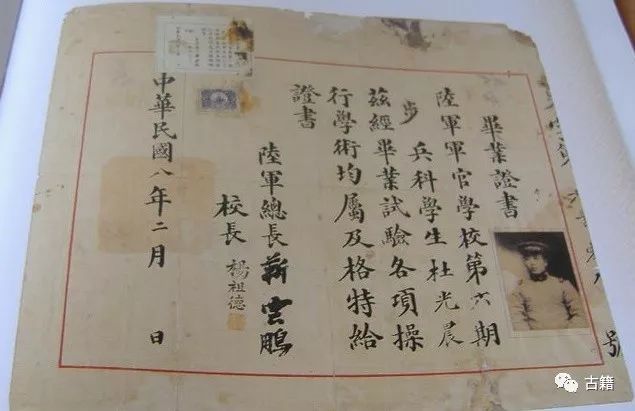 畢業證書
陸軍軍官學校第六期
步兵科學生杜光晨
茲經畢業試驗各項操
行學術均屬及格特給
證書
陸軍總長靳雲鵬
校長楊祖德
中華民國八年二月 日
號
古籍